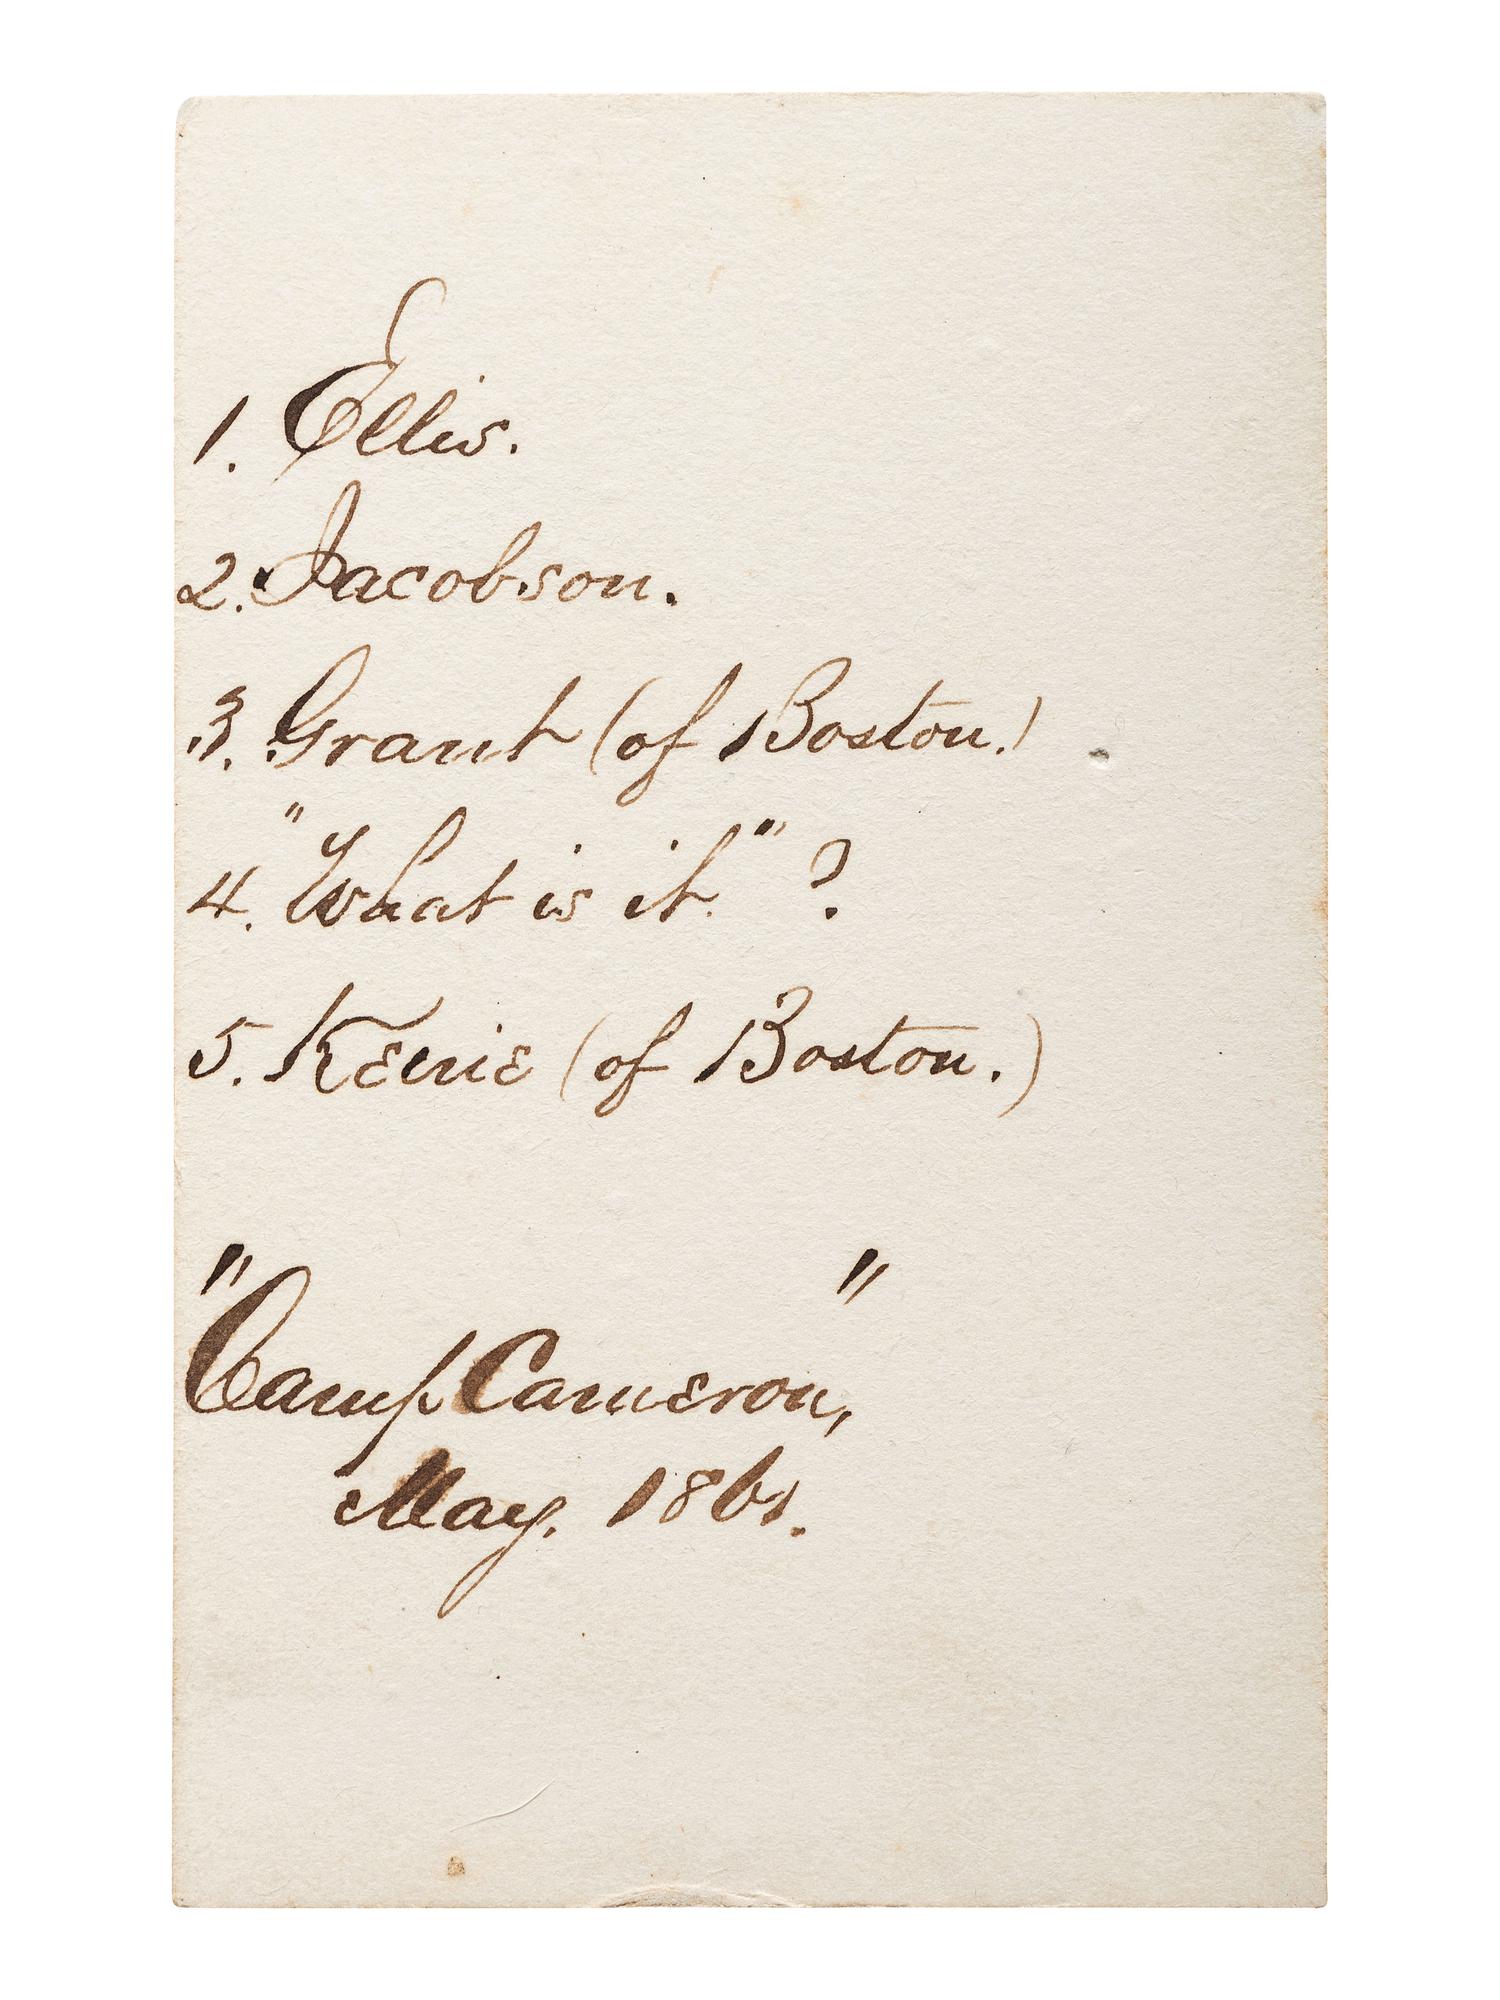 1. Ellis.
2. Jacobson.
3. Grant (of Boston.)
4. "What is it" ?
5. Keenie (of Boston.)
"Camp Cameron,"
May. 1861.